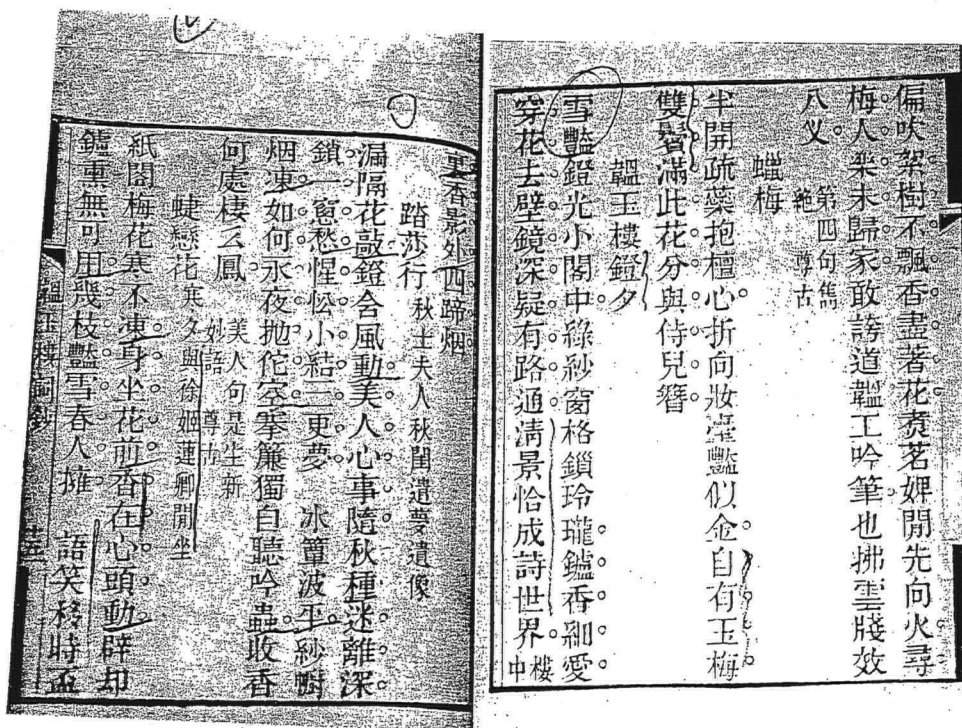 偏吹絮樹不飄香盡著花煑茗婢閒先向火尋
梅人來未歸家敢誇道韞工吟筆也拂雲牋效
八义。第四句雋絶 尊古
蠟梅
半開疏蘂抱檀心折向妝臺豔似金自有玉梅
雙鬢滿此花分與侍兒簪
韞玉樓鐙夕
雪豔鐙光小閣中綠紗窗格鎖玲瓏鑪香細愛
穿花去壁鏡深疑有路通淸景恰成詩世界樓中
裏香影外四蹄烟
踏莎行 秋士夫人秋閨遣夢遺像
漏隔花敲鐙含風動美人心事隨秋種迷離深
鎖一窗愁惺忪小結三更夢 冰簟波平紗㡡
烟凍如何永夜抛佗空搴簾獨自聽吟蟲收香
何處棲幺鳳 美人句是生新妙語 尊古
蜨戀花 寒夕與徐姬蓮卿閒坐
紙閣梅花寒不凍身坐花前香在心頭動辟却
鑪熏無可用幾枝豔雪春人擁 語笑移時盃
韞玉樓詞鈔